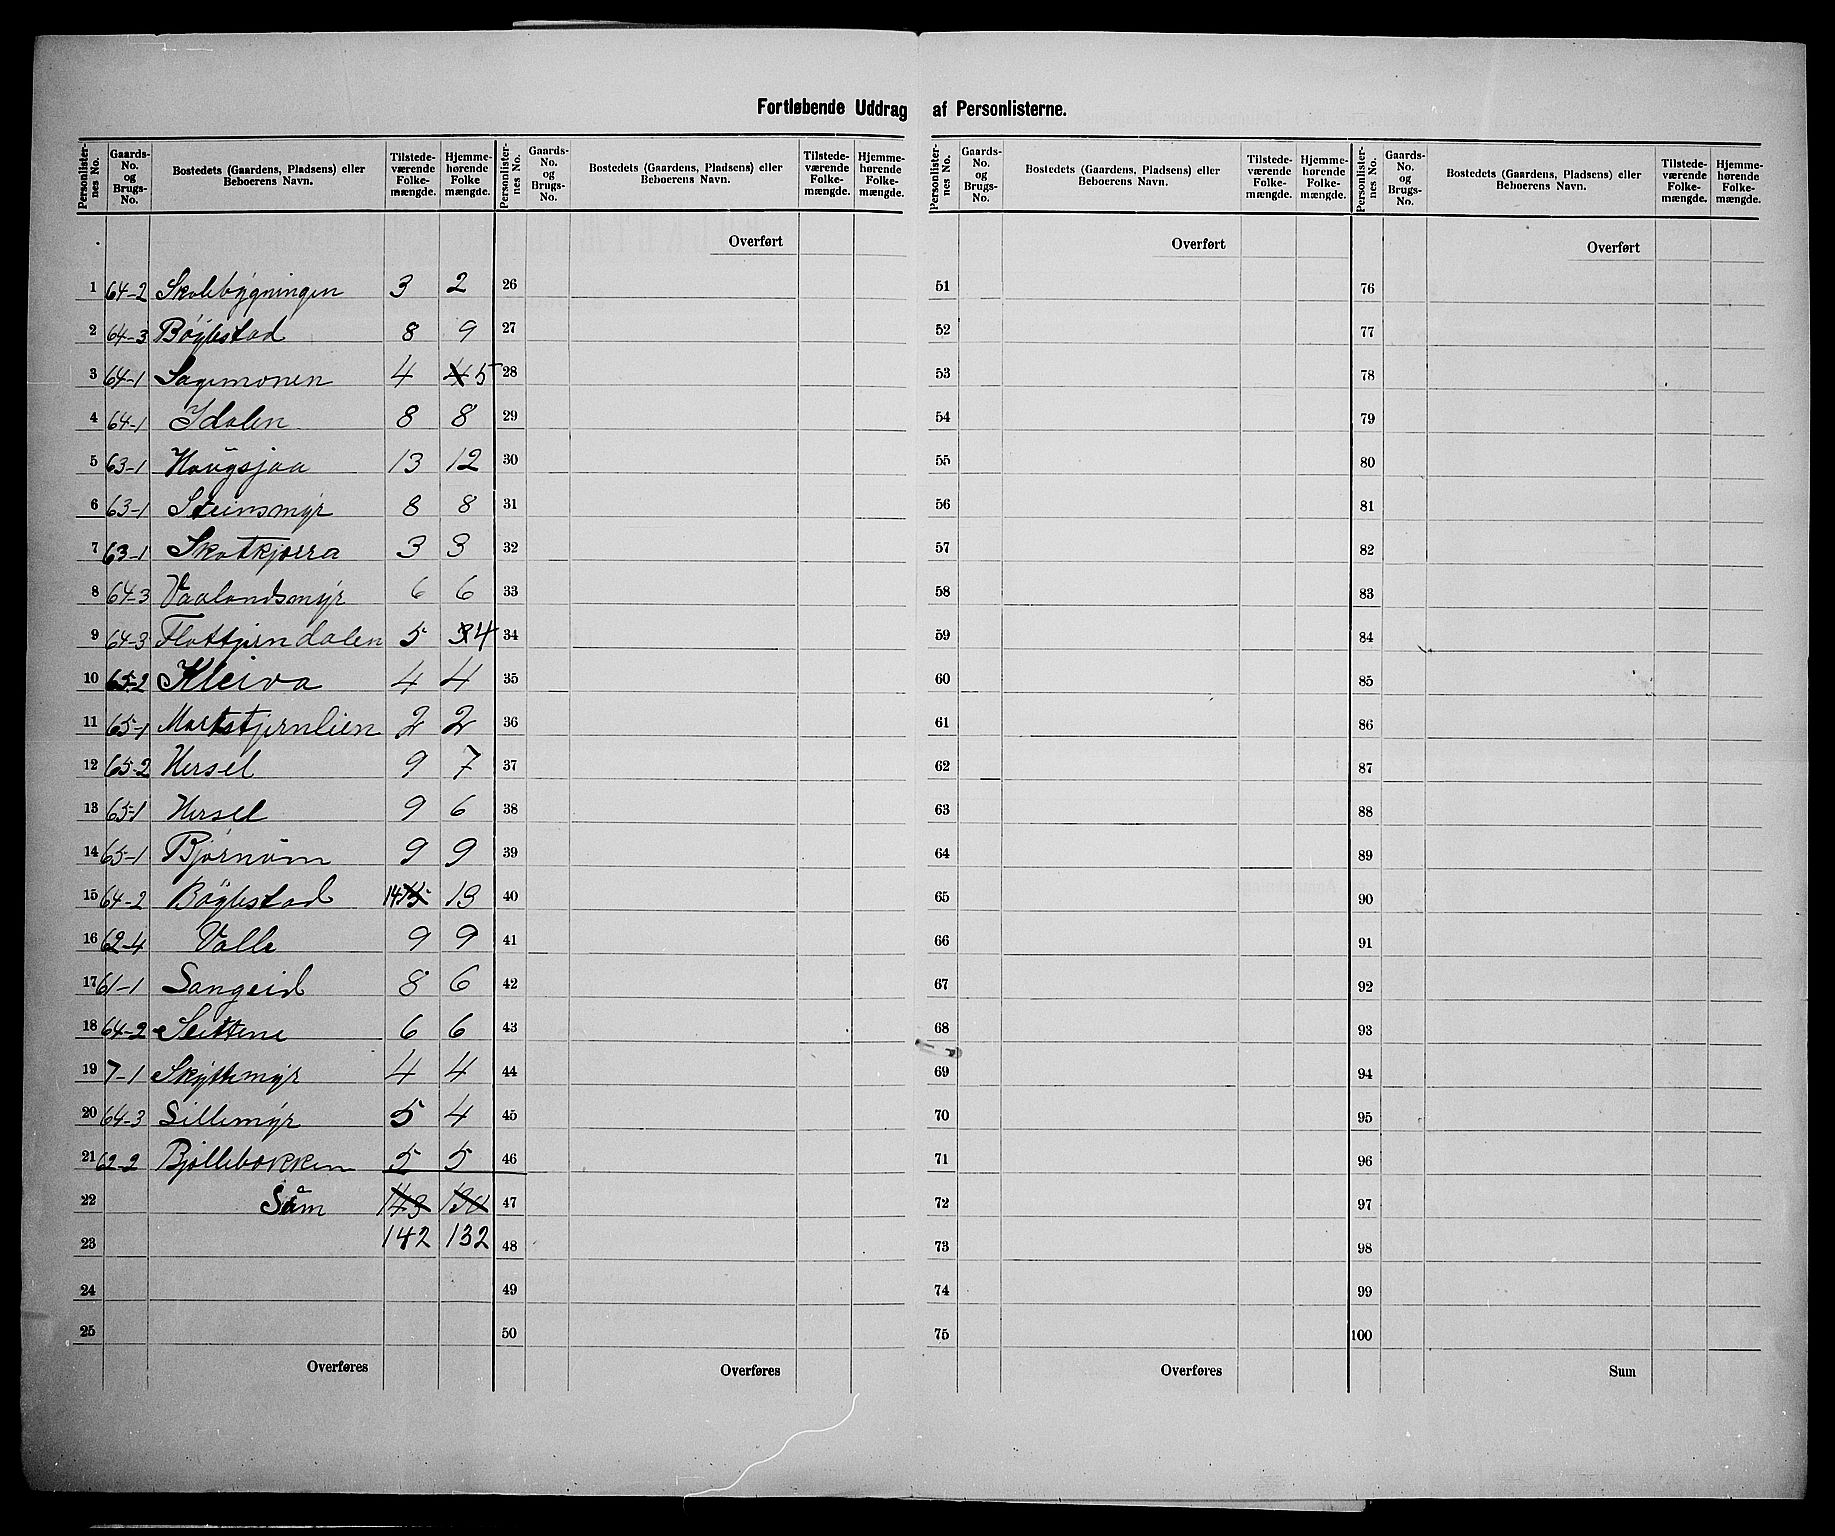 Fortløbende Uddrag af Personlisterne.
Personlister-nes No. Gaards-No. og Brugs-No. Bostedets (Gaardens, Pladsens) eller Beboerens Navn. Tilstede-værende Folke-mængde. Hjemme-hørende Folke mængde.
Personlister-nes No. Gaards-No. og Brugs-No. Bostedets (Gaardens, Pladsens) eller Beboerens Navn. Tilstede-værende Folke-mængde. Hjemme-hørende Folke-mængde.
Personlister-nes No. Gaards-No. og Brugs-No. Bostedets (Gaardens, Pladsens) eller Beboerens Navn. Tilstede-værende Folke-mængde. Hjemme-hørende Folke-mængde.
Personlister-nes No. Gaards-No. og Brugs-No. Bostedets (Gaardens, Pladsens) eller Beboerens Navn. Tilstede-værende Folke-mængde. Hjemme-hørende Folke-mængde.
Overført Overført Overført
1 64-2 Skolebygningen 3 2 26 51 76
2 64-3 Bøylestad 8 9 27 52 77
3 64-1 Sagemonen 4 4 5 28 53 78
4 64-1 Idalen 8 8 29 54 79
5 63-1 Haugsjaa 13 12 30 55 80
6 63-1 Steinsmyr 8 8 31 56 81
7 63-1 Skotkjærra 3 3 32 57 82
8 64-3 Vaalandsmyr 6 6 33 58 83
9 64-3 Flottjerndalen 5 3 4 34 59 84
10 65-2 Kleiva 4 4 35 60 85
11 65-1 Martstjernlien 2 2 36 61 86
12 65-2 Hersel 9 7 37 62 87
13 65-1 Hersel 9 6 38 63 88
14 65-1 Bjørnom 9 9 39 64 89
15 64-2 Bøylestad 14 15 13 40 65 90
16 62-4 Valle 9 9 41 66 91
17 61-1 Sangeid 8 6 42 67 92
18 64-2 Slettene 6 6 43 68 93
19 7-1 Skyttemyr 4 4 44 69 94
20 64-3 Sillemyr 5 4 45 70 95
21 62-2 Bjellebækken 5 5 46 71 96
22 Sum 143 130 47 72 97
23 142 132 48 73 98
24 49 74 99
25 50 75 100
Overføres Overføres Overføres Sum